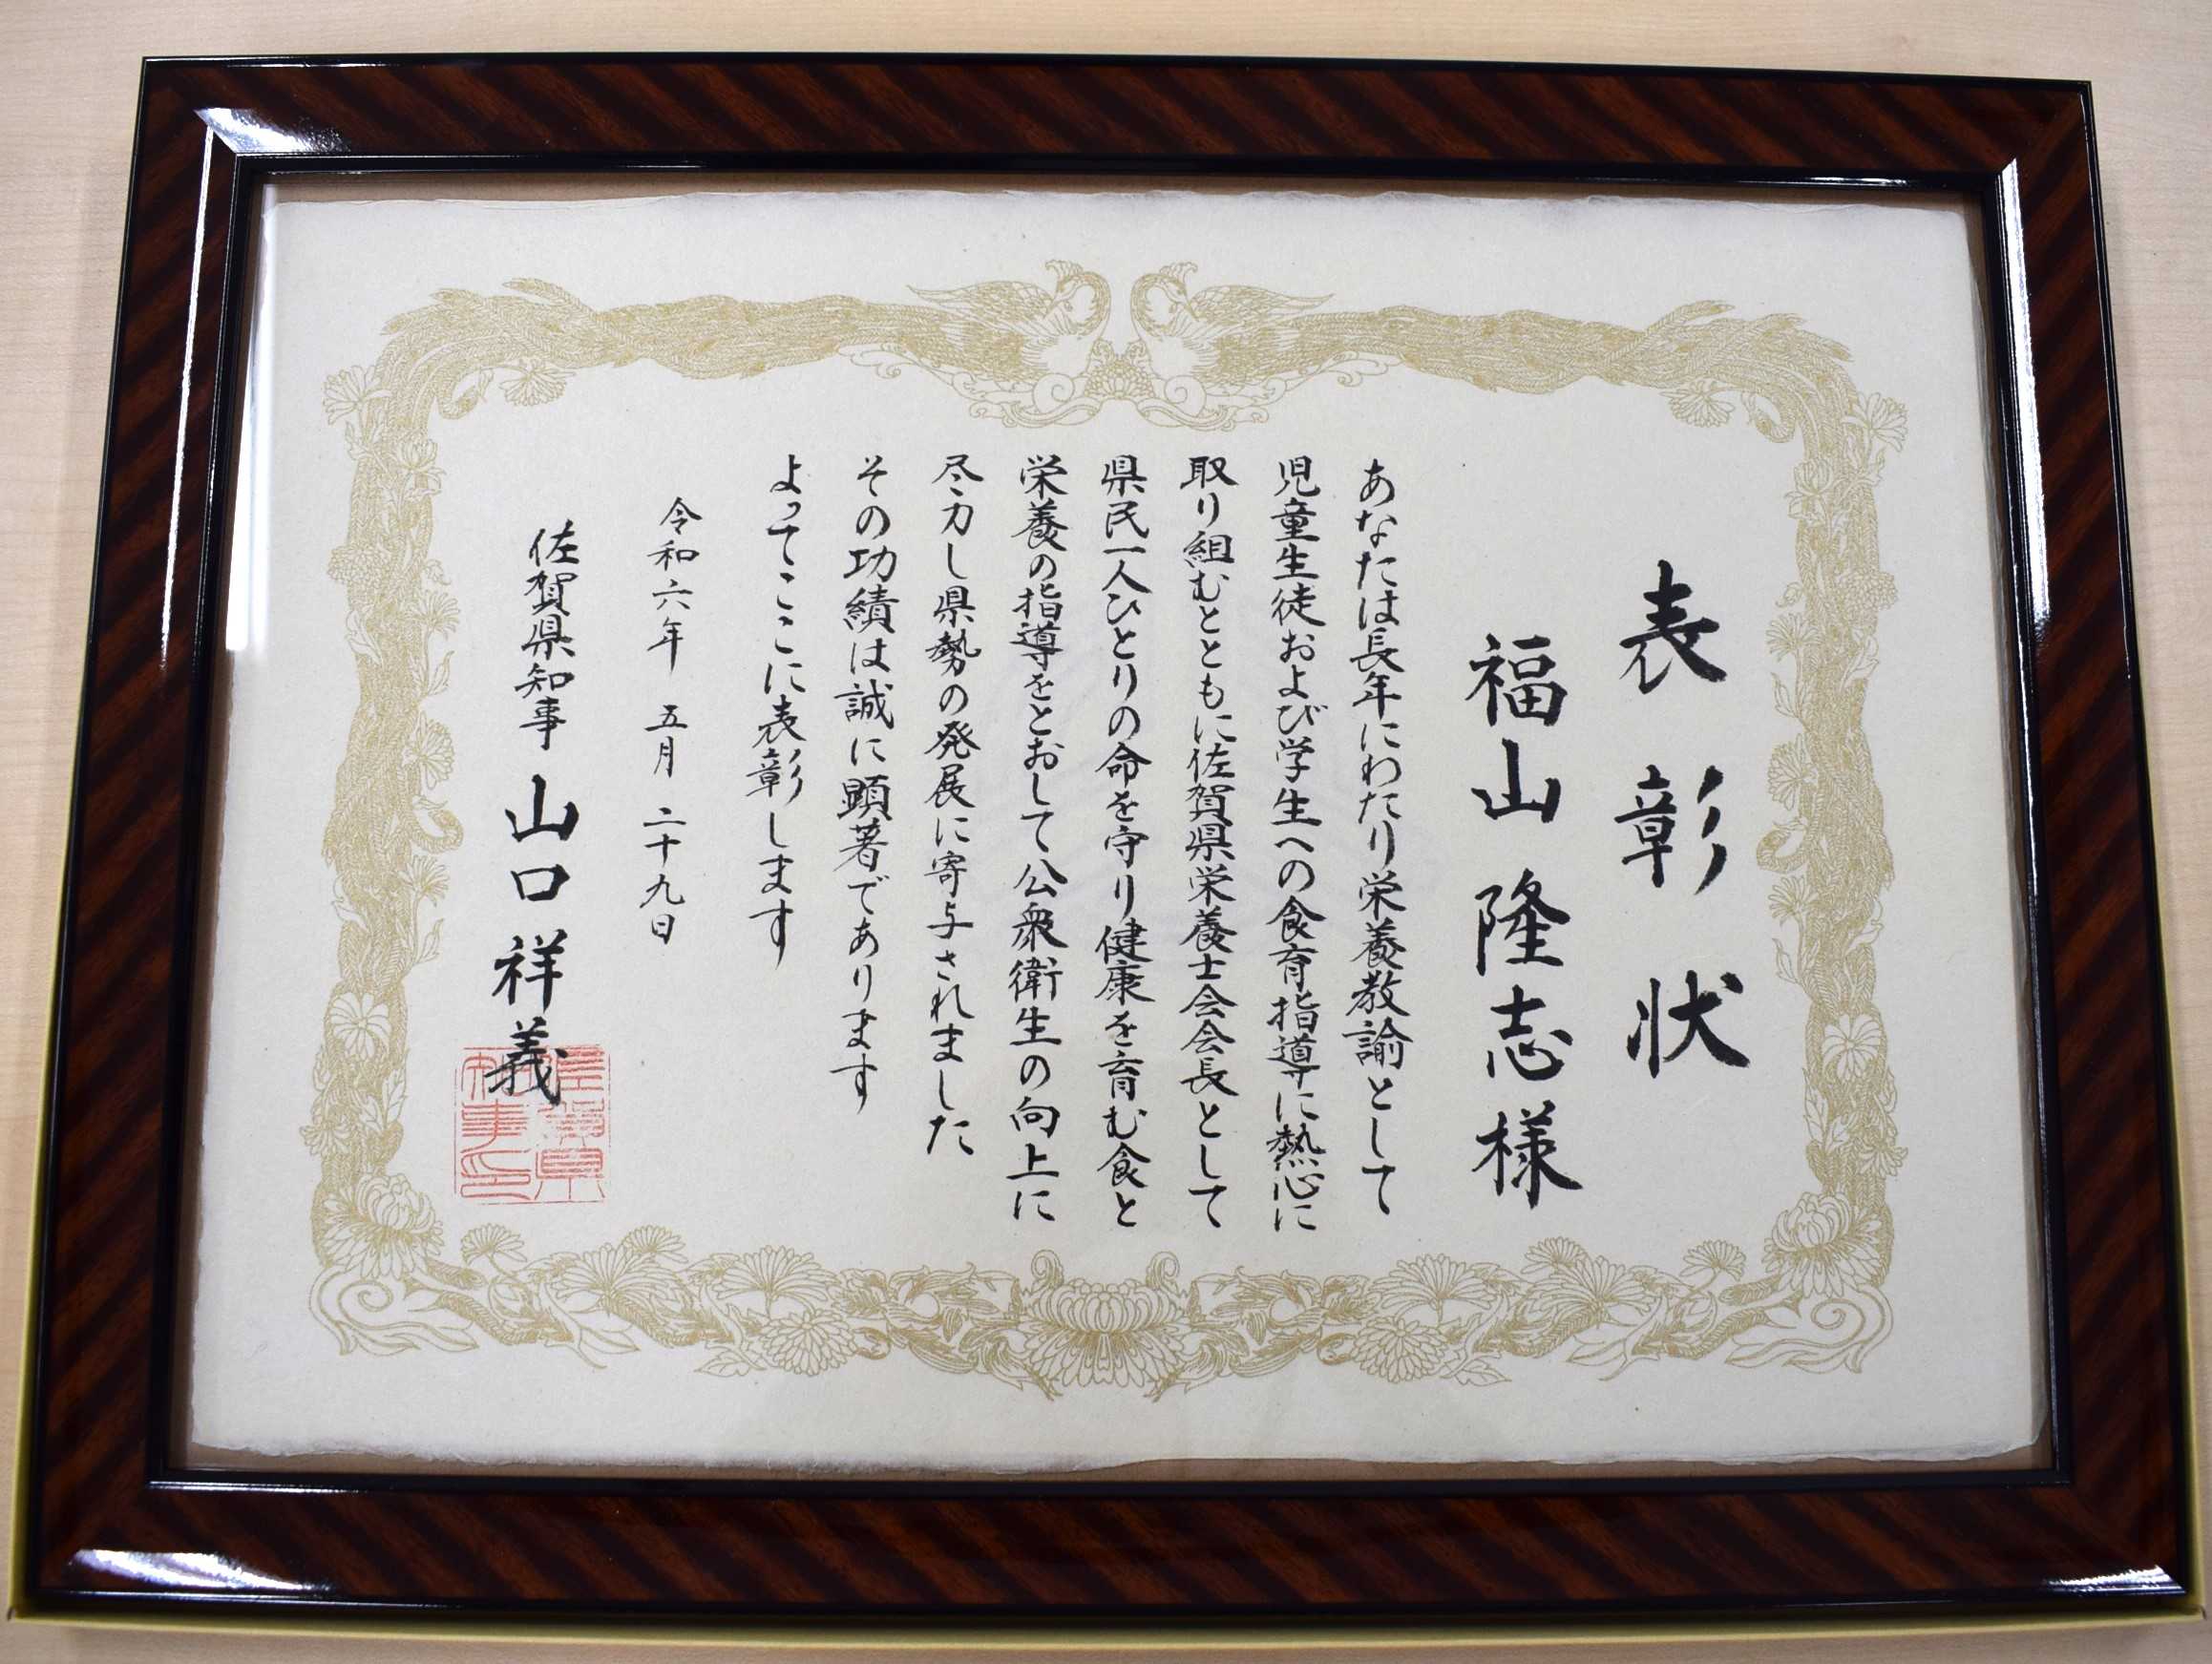 表彰状
福山隆志様
あなたは長年にわたり栄養教諭として
児童生徒および学生への食育指導に熱心に
取り組むとともに佐賀県栄養士会会長として
県民一人ひとりの命を守り健康を育む食と
栄養の指導をとおして公衆衛生の向上に
尽力し県勢の発展に寄与されました
その功績は誠に顕著であります
よってここに表彰します
令和六年 五月 二十九日
佐賀県知事 山口祥義
佐賀県
知事印